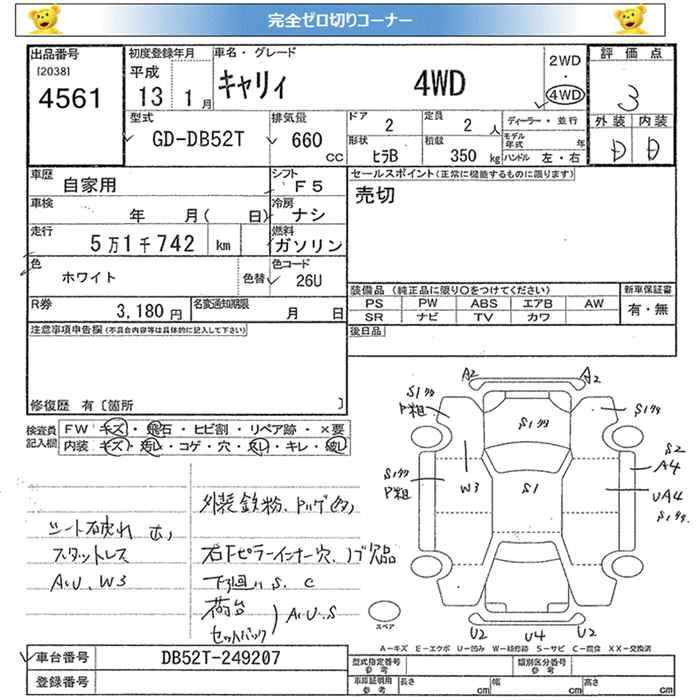 完全ゼロ切りコーナー
出品番号 初度登録年月 車名・グレード 2WD 評価点
[2038] 平成 ・
4561 13 1月 キャリィ 4WD 4WD 3
型式 排気量 ドア 定員 ディーラー・並行 外装 内装
GD-DB52T 660 CC 2 2 人 モデル年式 年 D D
形状 積載
ヒラB 350 kg ハンドル 左・右
車歴 自家用 シフト F5 セールスポイント(正常に機能するものに限ります)
車検 年 月( 日) 冷房 ナシ 売切
走行 5万1千742 km 燃料 ガソリン
色 ホワイト 色替 色コード 26U
装備品 (純正品に限り○をつけてください) 新車保証書
R券 3,180円 名変通知期限 月 日 PS PW ABS エアB AW 有・無
SR ナビ TV カワ
注意事項申告欄(不具合内容等は具体的に記入して下さい) 後日品
修復歴 有〔箇所 〕
検査員記入欄 FW キズ・飛石・ヒビ割・リペア跡・×要
内装 キズ・汚レ・コゲ・穴・スレ・キレ・破レ
A2 A2
S1クサ
P粗
S1クサ
S1クサ
S1クサ
P粗
W3
S1
S2
A4
UA4
S1クサ
シート破れ 大
スタットレス
A.U.W3
外装鉄粉、
右Fピラーインナー穴、
欠品
下回り S.C
荷台
A.U.S
スペア
U2 U4 U2
A-キズ E-エクボ U-凹み W-補修跡 S-サビ C-腐食 XX-交換済
車台番号 DB52T-249207 型式指定番号 参考 類別区分番号 参考
登録番号 車庫証明用 参考 長さ cm 幅 cm 高さ cm